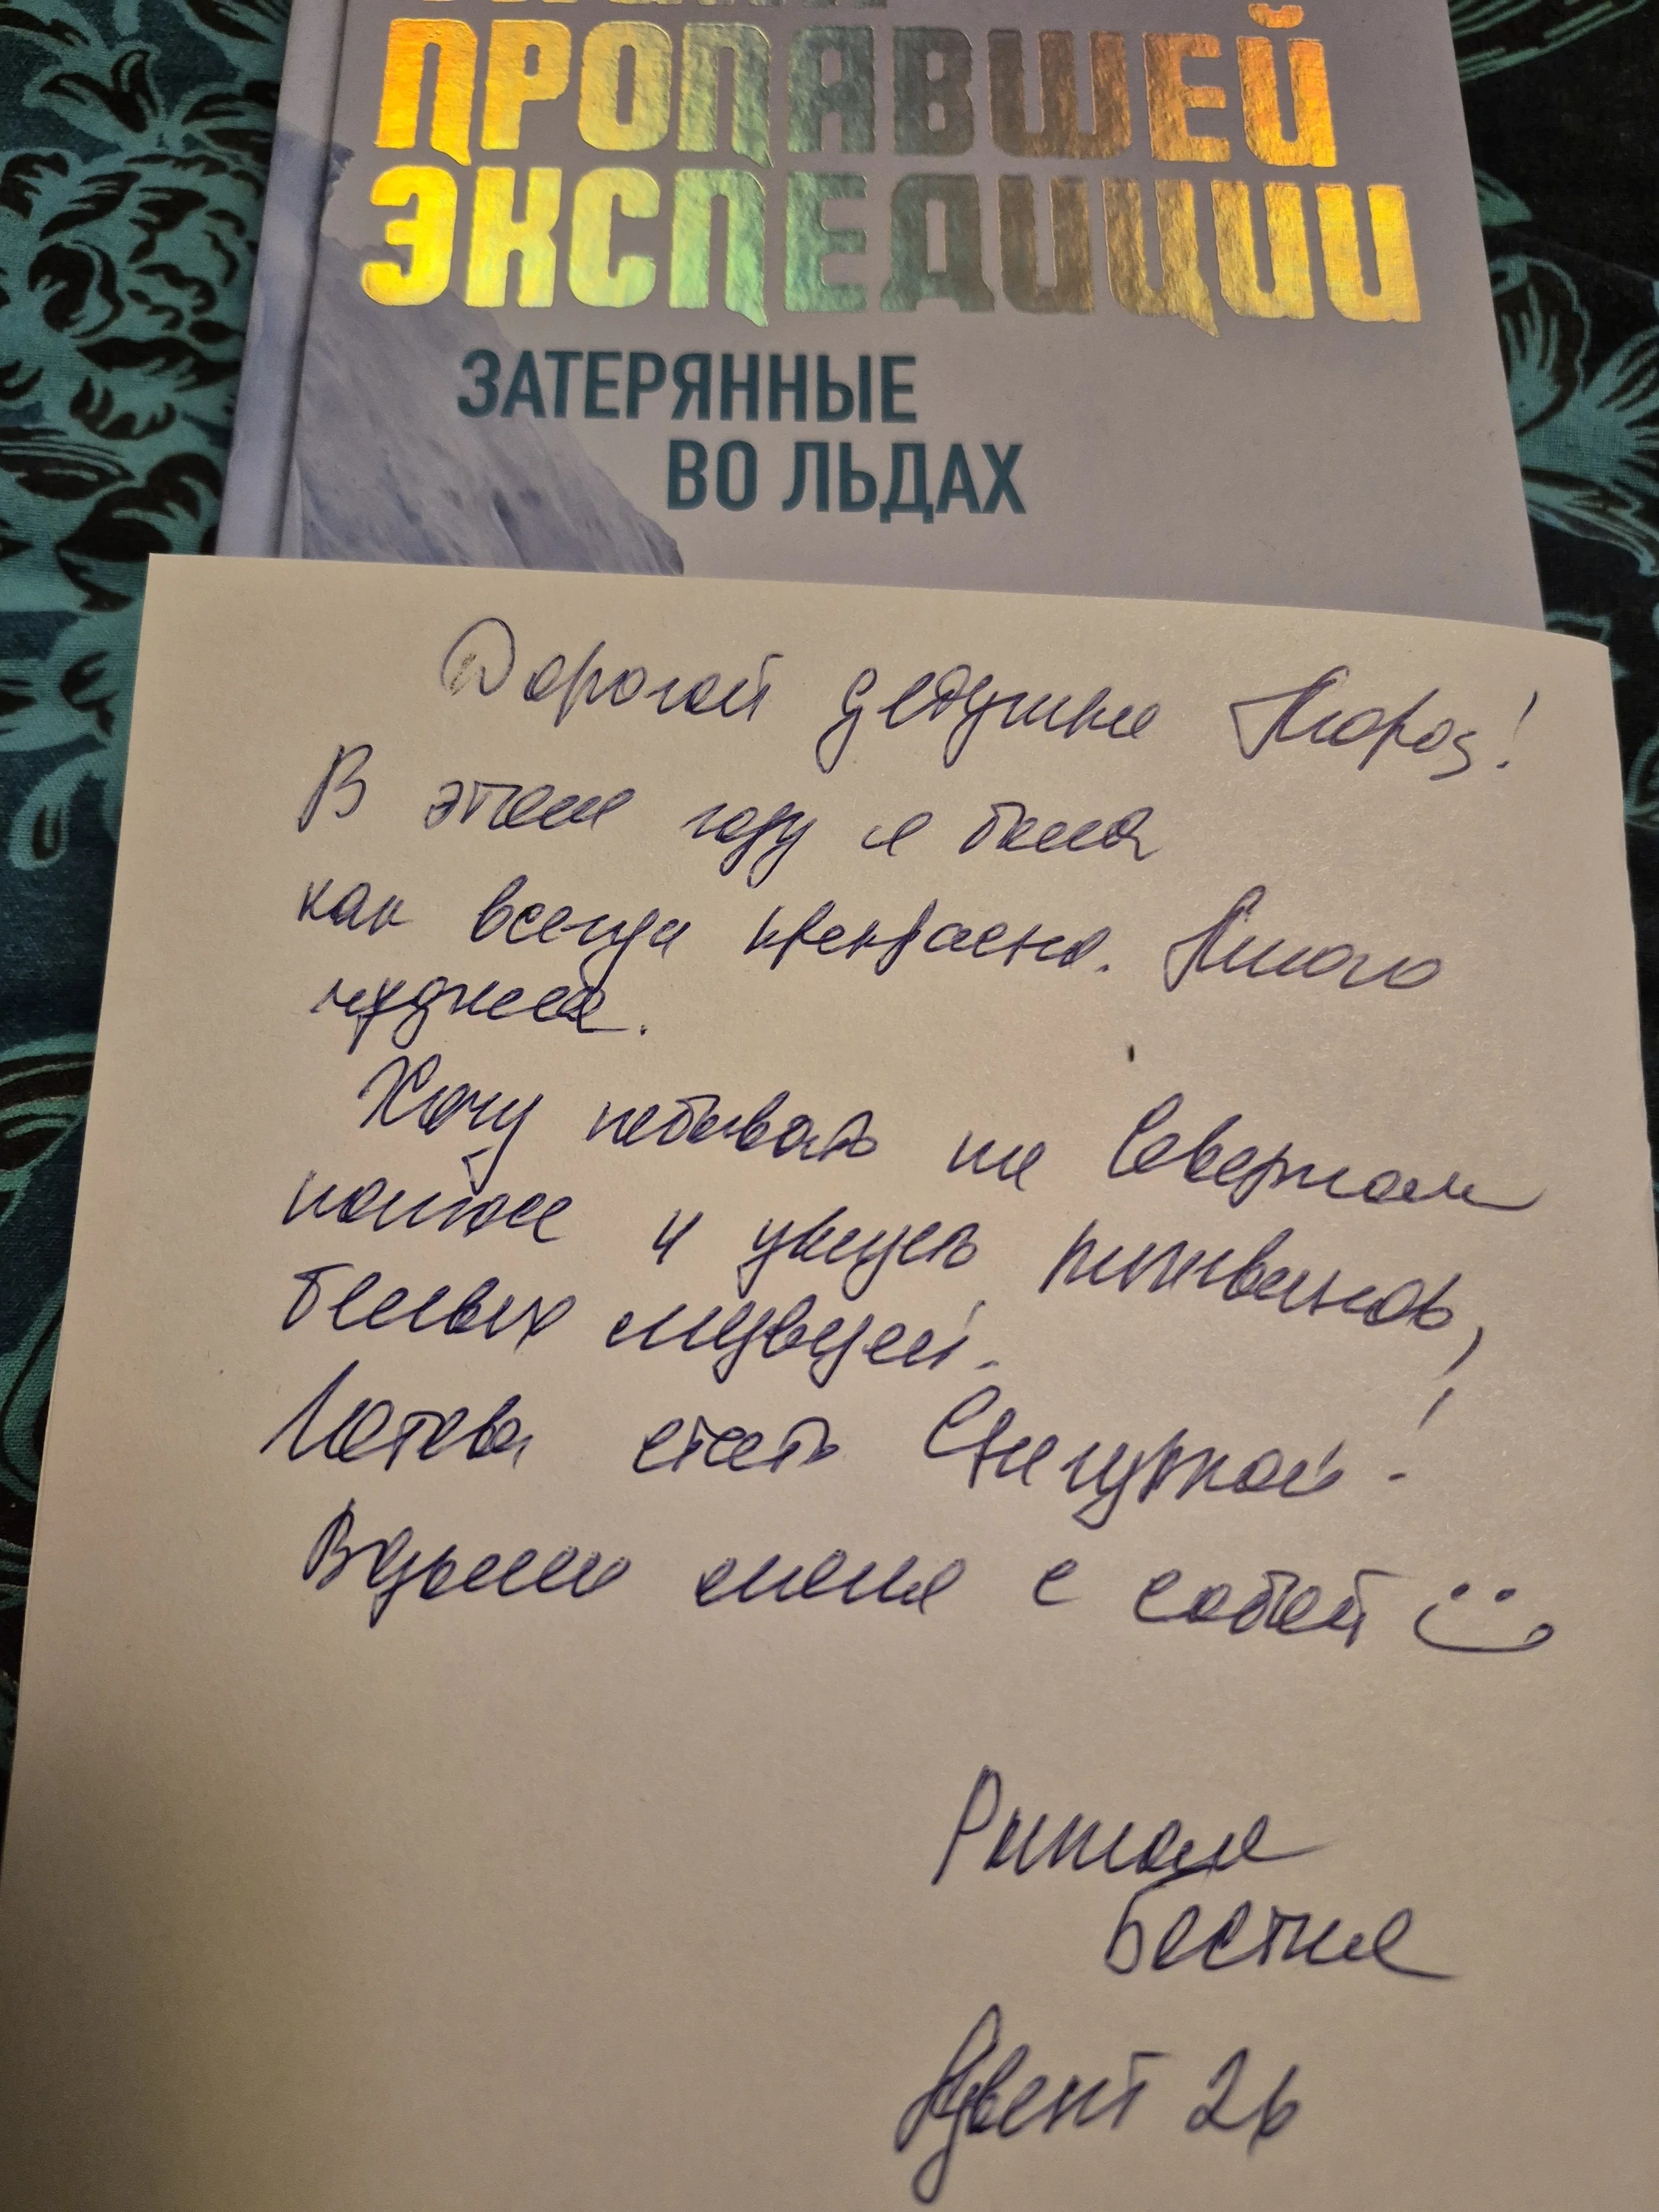 ПРОПАВШЕЙ
ЭКСПЕДИЦИИ
ЗАТЕРЯННЫЕ
ВО ЛЬДАХ
Дорогой дедушка Мороз!
В этом году я была
как всегда прекрасна. Много
худнела.
Хочу побывать на Северном
полюсе и увидеть пингвинов,
белых медведей.
Готова стать Снегуркой!
Возьми меня с собой
Рыжая
Бестия
Адвент 26